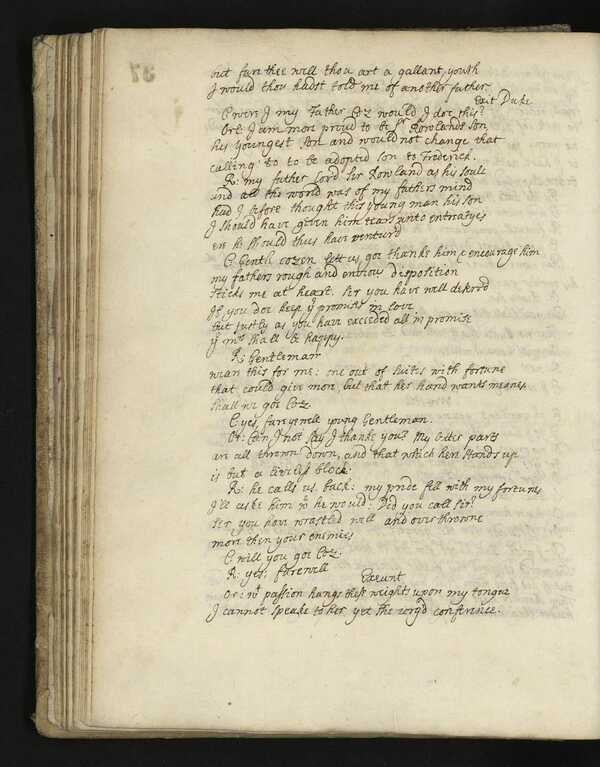 but fare thee well thou art a gallant youth
I would thou hadst told me of another father.
Exit Duke
C: were I my Father Coz would I doe this?
Orl: I am more proud to be Sr Rowlands son,
his youngest son and would not change that
calling to to be adopted son to Frederick.
R: my father Lord Sir Rowland as his soule
and all the world was of my fathers mind
had I before thought this young man his son
I should have given him tears unto entratyes
ere he should thus have venturd
C Gentle cozen lett us goe thanke him & encourage him
my fathers rough and envious disposition
sticks me at heart. Sir you have well deservd
If you doe keep yr promises in love
but justly as you have exceeded all in promise
yr mrs shall be happy.
R: Gentleman
wear this for me: one out of suites with fortune
that could give more, but that her hand wants meanes
shall we goe Coz
C yes, fareyewell young Gentleman.
Or: Can I not say I thanke you? My better parts
are all thrown down, and that which here stands up
is but a liveless block.
R: he calls us back: my pride fell with my fortunes
I'le aske him wt he would: Did you call sir?
Sir you have wrastled well and overthrowne
more then your enemies
C will you goe Coz.
R: yes, farewell
Exeunt
Or: wt passion hangs these weights upon my tongue
I cannot speake to her yet she urg'd conference.
37